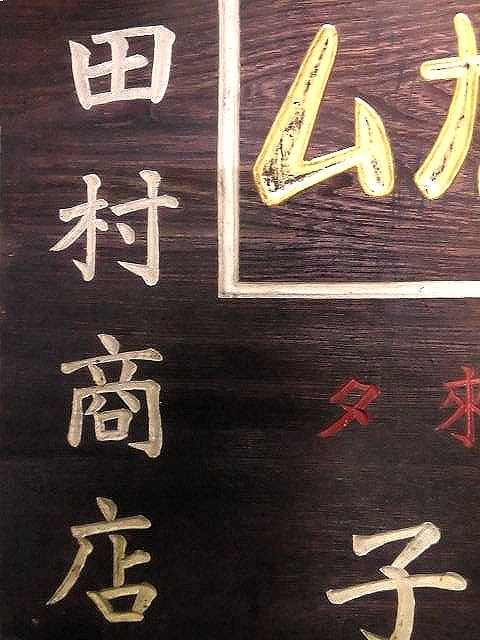 田村商店
ム
タ
子